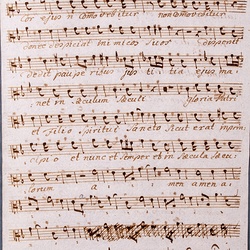 Cor ejus n Comovebitur non Comovebitur
donec despiciat inimicos suos dispersit
dedit pauperibus justitia ejus ma:
net in Saeculum Saeculi Gloria Patri
et Filio Spiritui Sancto Sicut erat in prin:
cipio et nunc et Semper et in Saecula Saecu:
lorum a men amen a